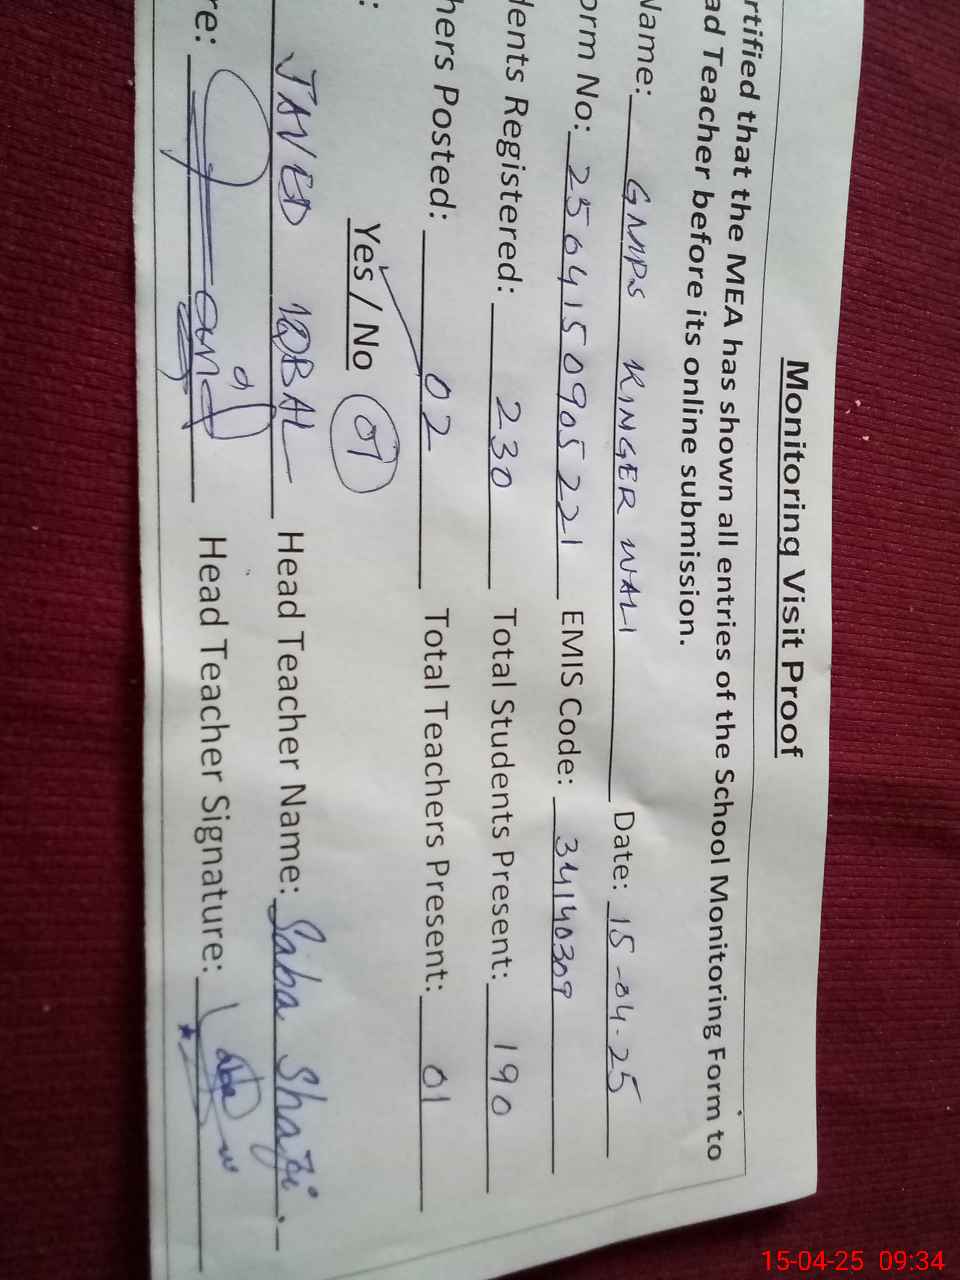 Monitoring Visit Proof
rtified that the MEA has shown all entries of the School Monitoring Form to
ad Teacher before its online submission.
Name: GMPS KINGER WALI Date: 15-04-25
orm No: 2504150905221 EMIS Code: 34140309
dents Registered: 230 Total Students Present: 190
hers Posted: 02 Total Teachers Present: 01
: Yes / No 07
JAVED IQBAL Head Teacher Name: Saba Shafi.
re: Head Teacher Signature:
15-04-25 09:34